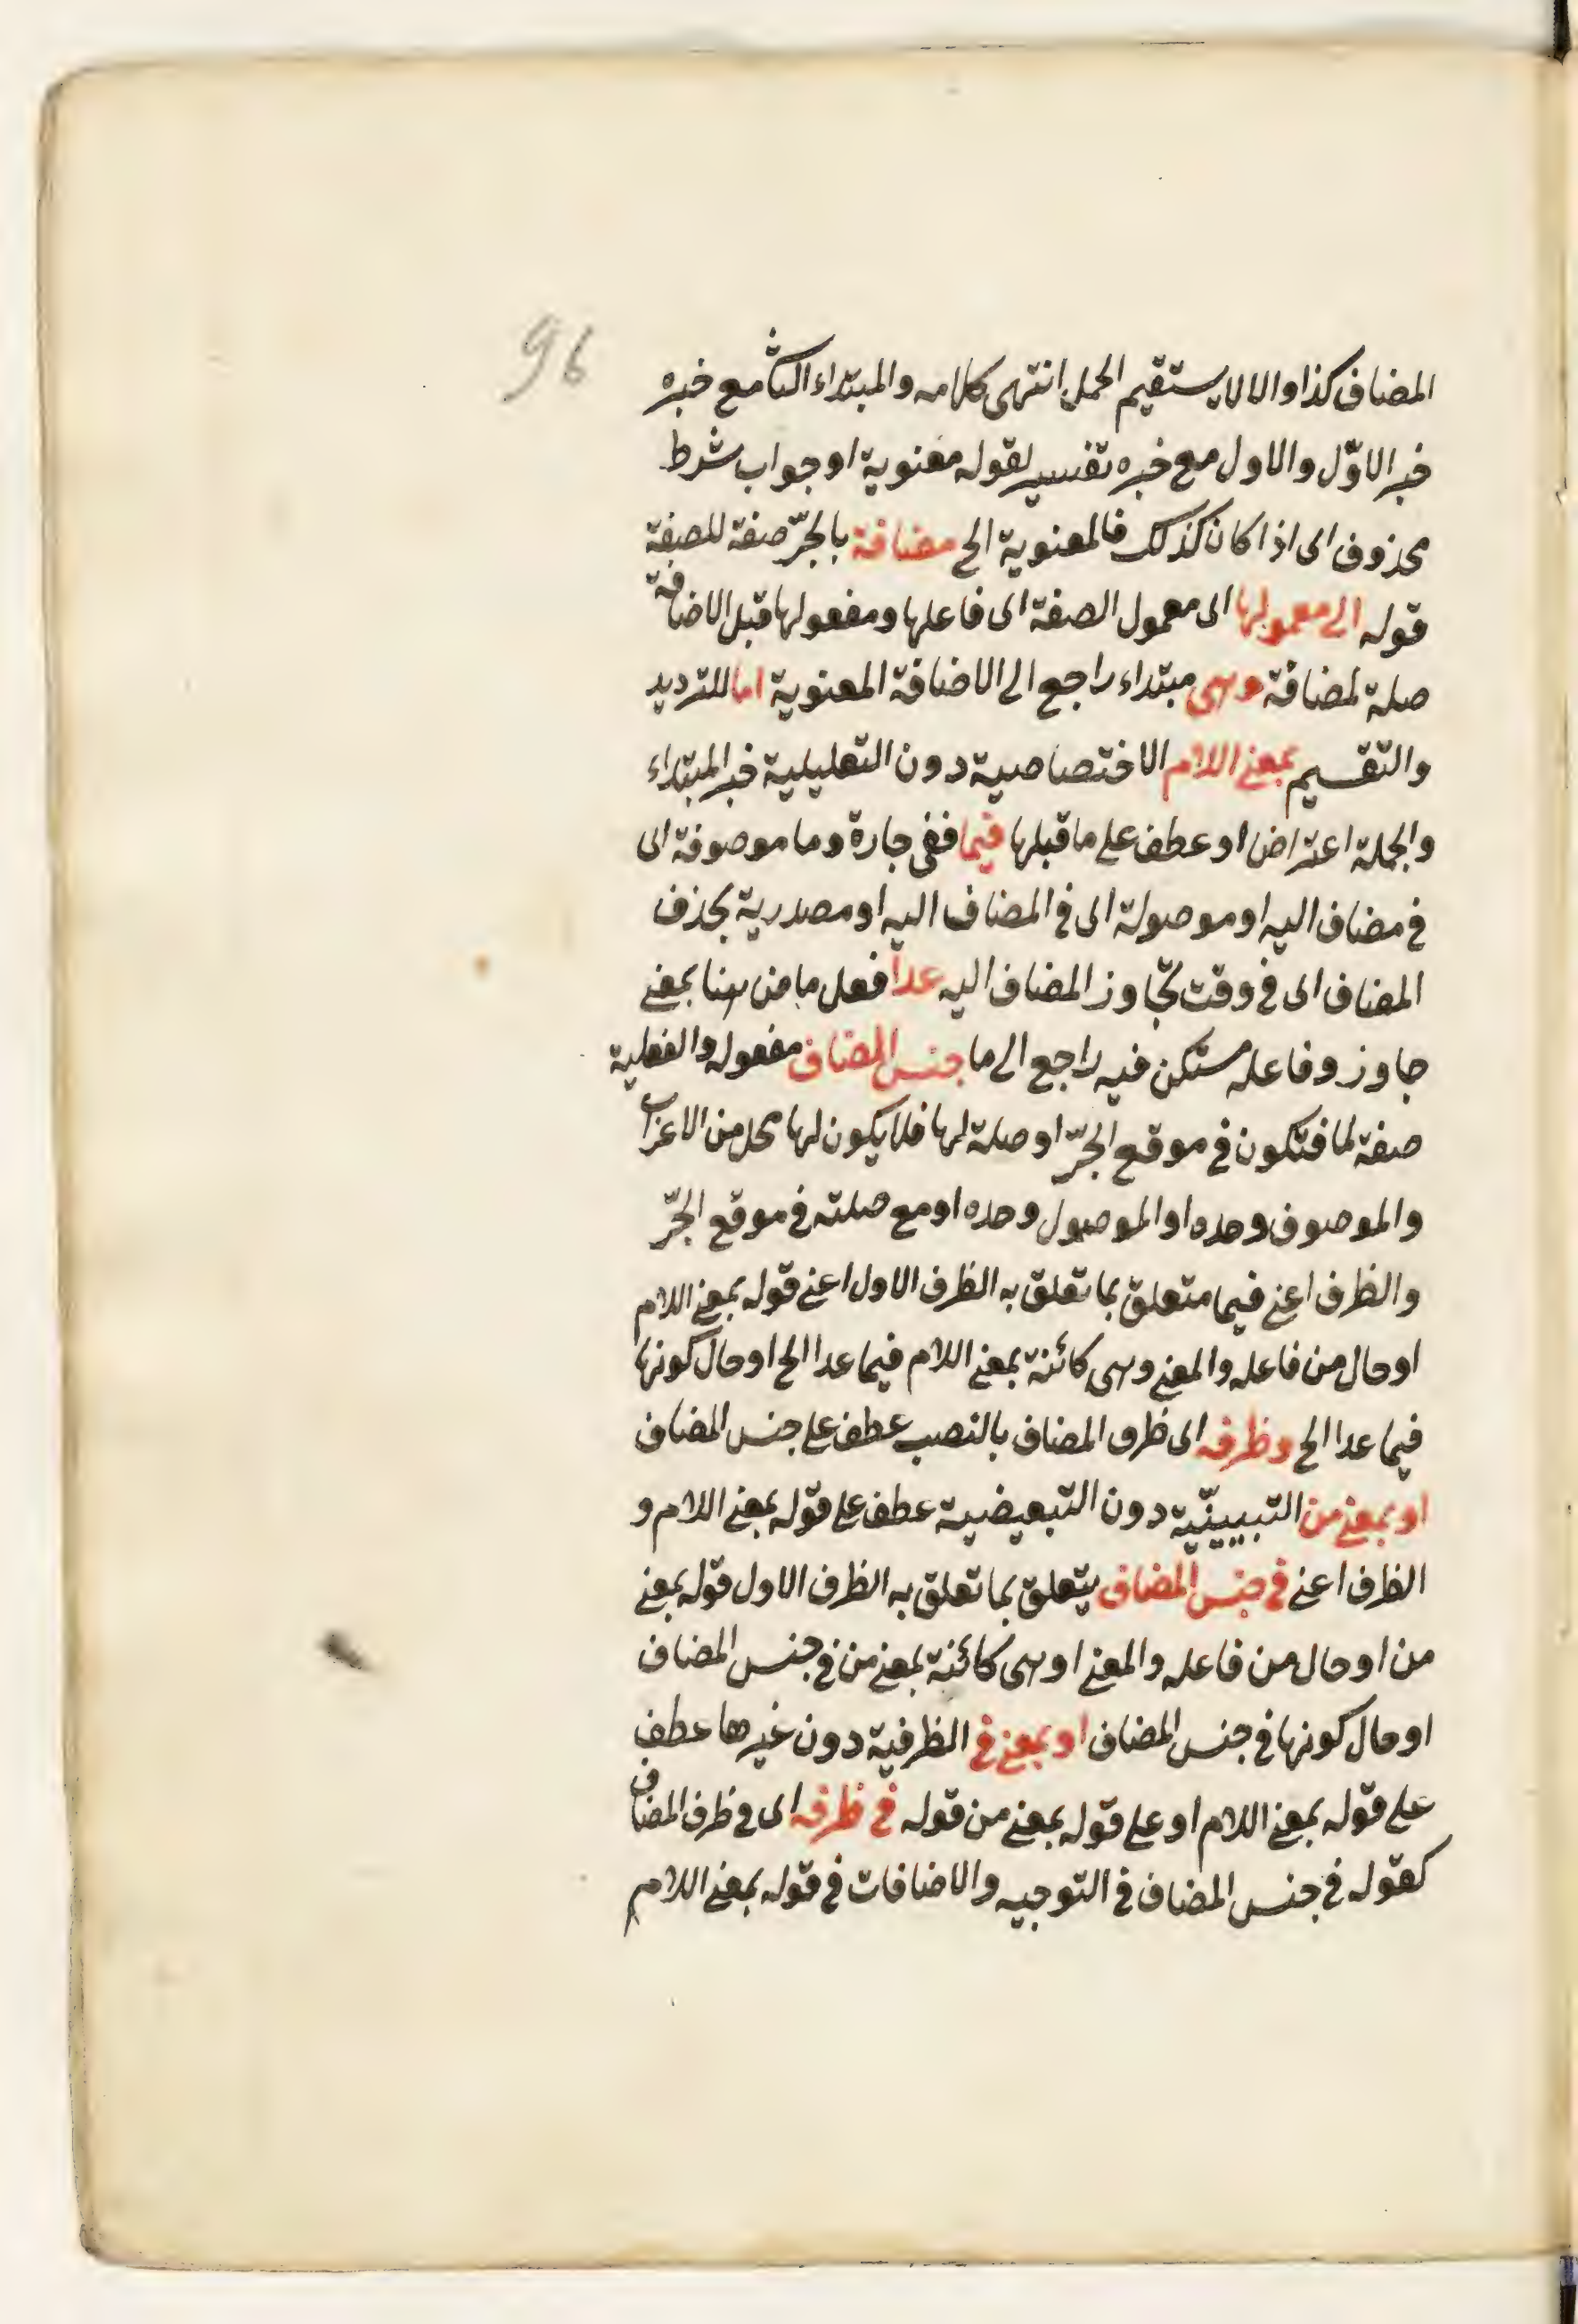 96
المضاف كذا والا لا يستقيم الحمل انتهى كلامه والمبتداء الثا مع خبره
خبر الاوّل والاول مع خبره تفسير لقوله معنوية او جواب شرط
محذوف اى اذا كان كذلك فالمعنوية الخ مضافة بالجرّ صفة للصفة
قوله الى معمولها اى معمول الصفة اى فاعلها ومفعولها قبل الاضافة
صلة لمضافة وهى مبتداء راجع الى الاضافة المعنوية اما للترديد
والتقسيم بمعنى اللام الاختصاصية دون التعليلية خبر المبتداء
والجملة اعتراض او عطف على ما قبلها فيما ففى جارة وما موصوفة اى
فى مضاف اليه او موصولة اى فى المضاف اليه او مصدرية بحذف
المضاف اى فى وقت تجاوز المضاف اليه عدا فعل ماض هنا بمعنى
جاوز وفاعله مستكن فيه راجع الى ما جنس المضاف مفعوله والفعلية
صفة لما فتكون فى موقع الجرّ او صلة لها فلا يكون لها محل من الاعراب
والموصوف وحده او الموصول وحده او مع صلته فى موقع الجرّ
والظرف اعنى فيما متعلق بما تعلق به الظرف الاول اعنى قوله بمعنى اللام
او حال من فاعله والمعنى وهى كائنة بمعنى اللام فيما عدا الخ او حال كونها
فيما عدا الخ وظرفه اى ظرف المضاف بالنصب عطف على جنس المضاف
او بمعنى من التبيينيّة دون التبعيضية عطف على قوله بمعنى اللام و
الظرف اعنى فى جنس المضاف يتعلق بما تعلق به الظرف الاول قوله بمعنى
من او حال من فاعله والمعنى او هى كائنة بمعنى من فى جنس المضاف
او حال كونها فى جنس المضاف او بمعنى فى الظرفية دون غيرها عطف
على قوله بمعنى اللام او على قوله بمعنى من قوله فى ظرفه اى فى ظرف المضاف
كقوله فى جنس المضاف فى التوجيه والاضافات فى قوله بمعنى اللام